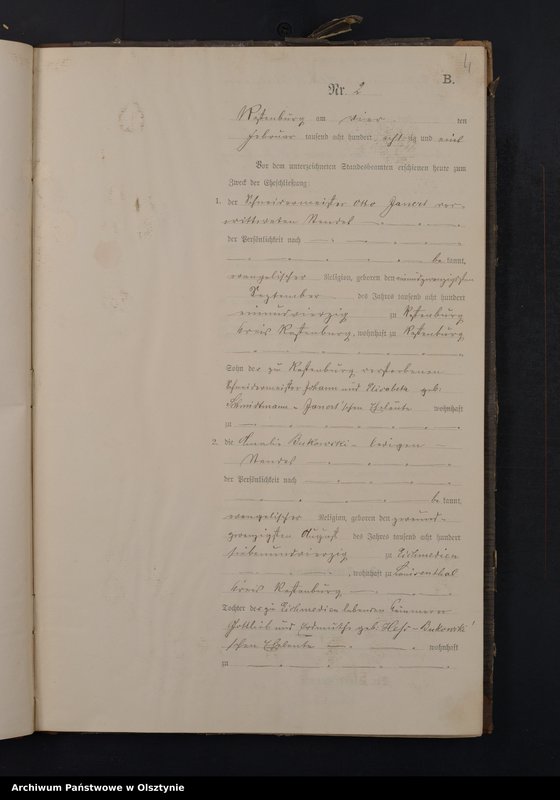 4
B.
Nr. 2
Rastenburg am vier ten
Februar tausend acht hundert acht zig und eins
Vor dem unterzeichneten Standesbeamten erschienen heute zum
Zweck der Eheschließung:
1. der Schneidermeister Otto Janert ver-
wittweten Standes
der Persönlichkeit nach
be kannt,
evangelischer Religion, geboren den neunundzwanzigsten
September des Jahres tausend acht hundert
einundvierzig zu Rastenburg
Kreis Rastenburg, wohnhaft zu Rastenburg,
Sohn der zu Rastenburg verstorbenen
Schneidermeister Johann und Elisabeth geb.
Janert'schen Eheleute wohnhaft
zu
2. die Amalie Bukowski - ledigen
Standes
der Persönlichkeit nach
be kannt,
evangelischer Religion, geboren den zweiund-
zwanzigsten August des Jahres tausend acht hundert
siebenundvierzig zu Eichmedien
, wohnhaft zu
Kreis Rastenburg
Tochter der zu Eichmedien lebenden
Gottlieb und geb. Hess - Bukowski'
schen Eheleute wohnhaft
zu
Archiwum Państwowe w Olsztynie